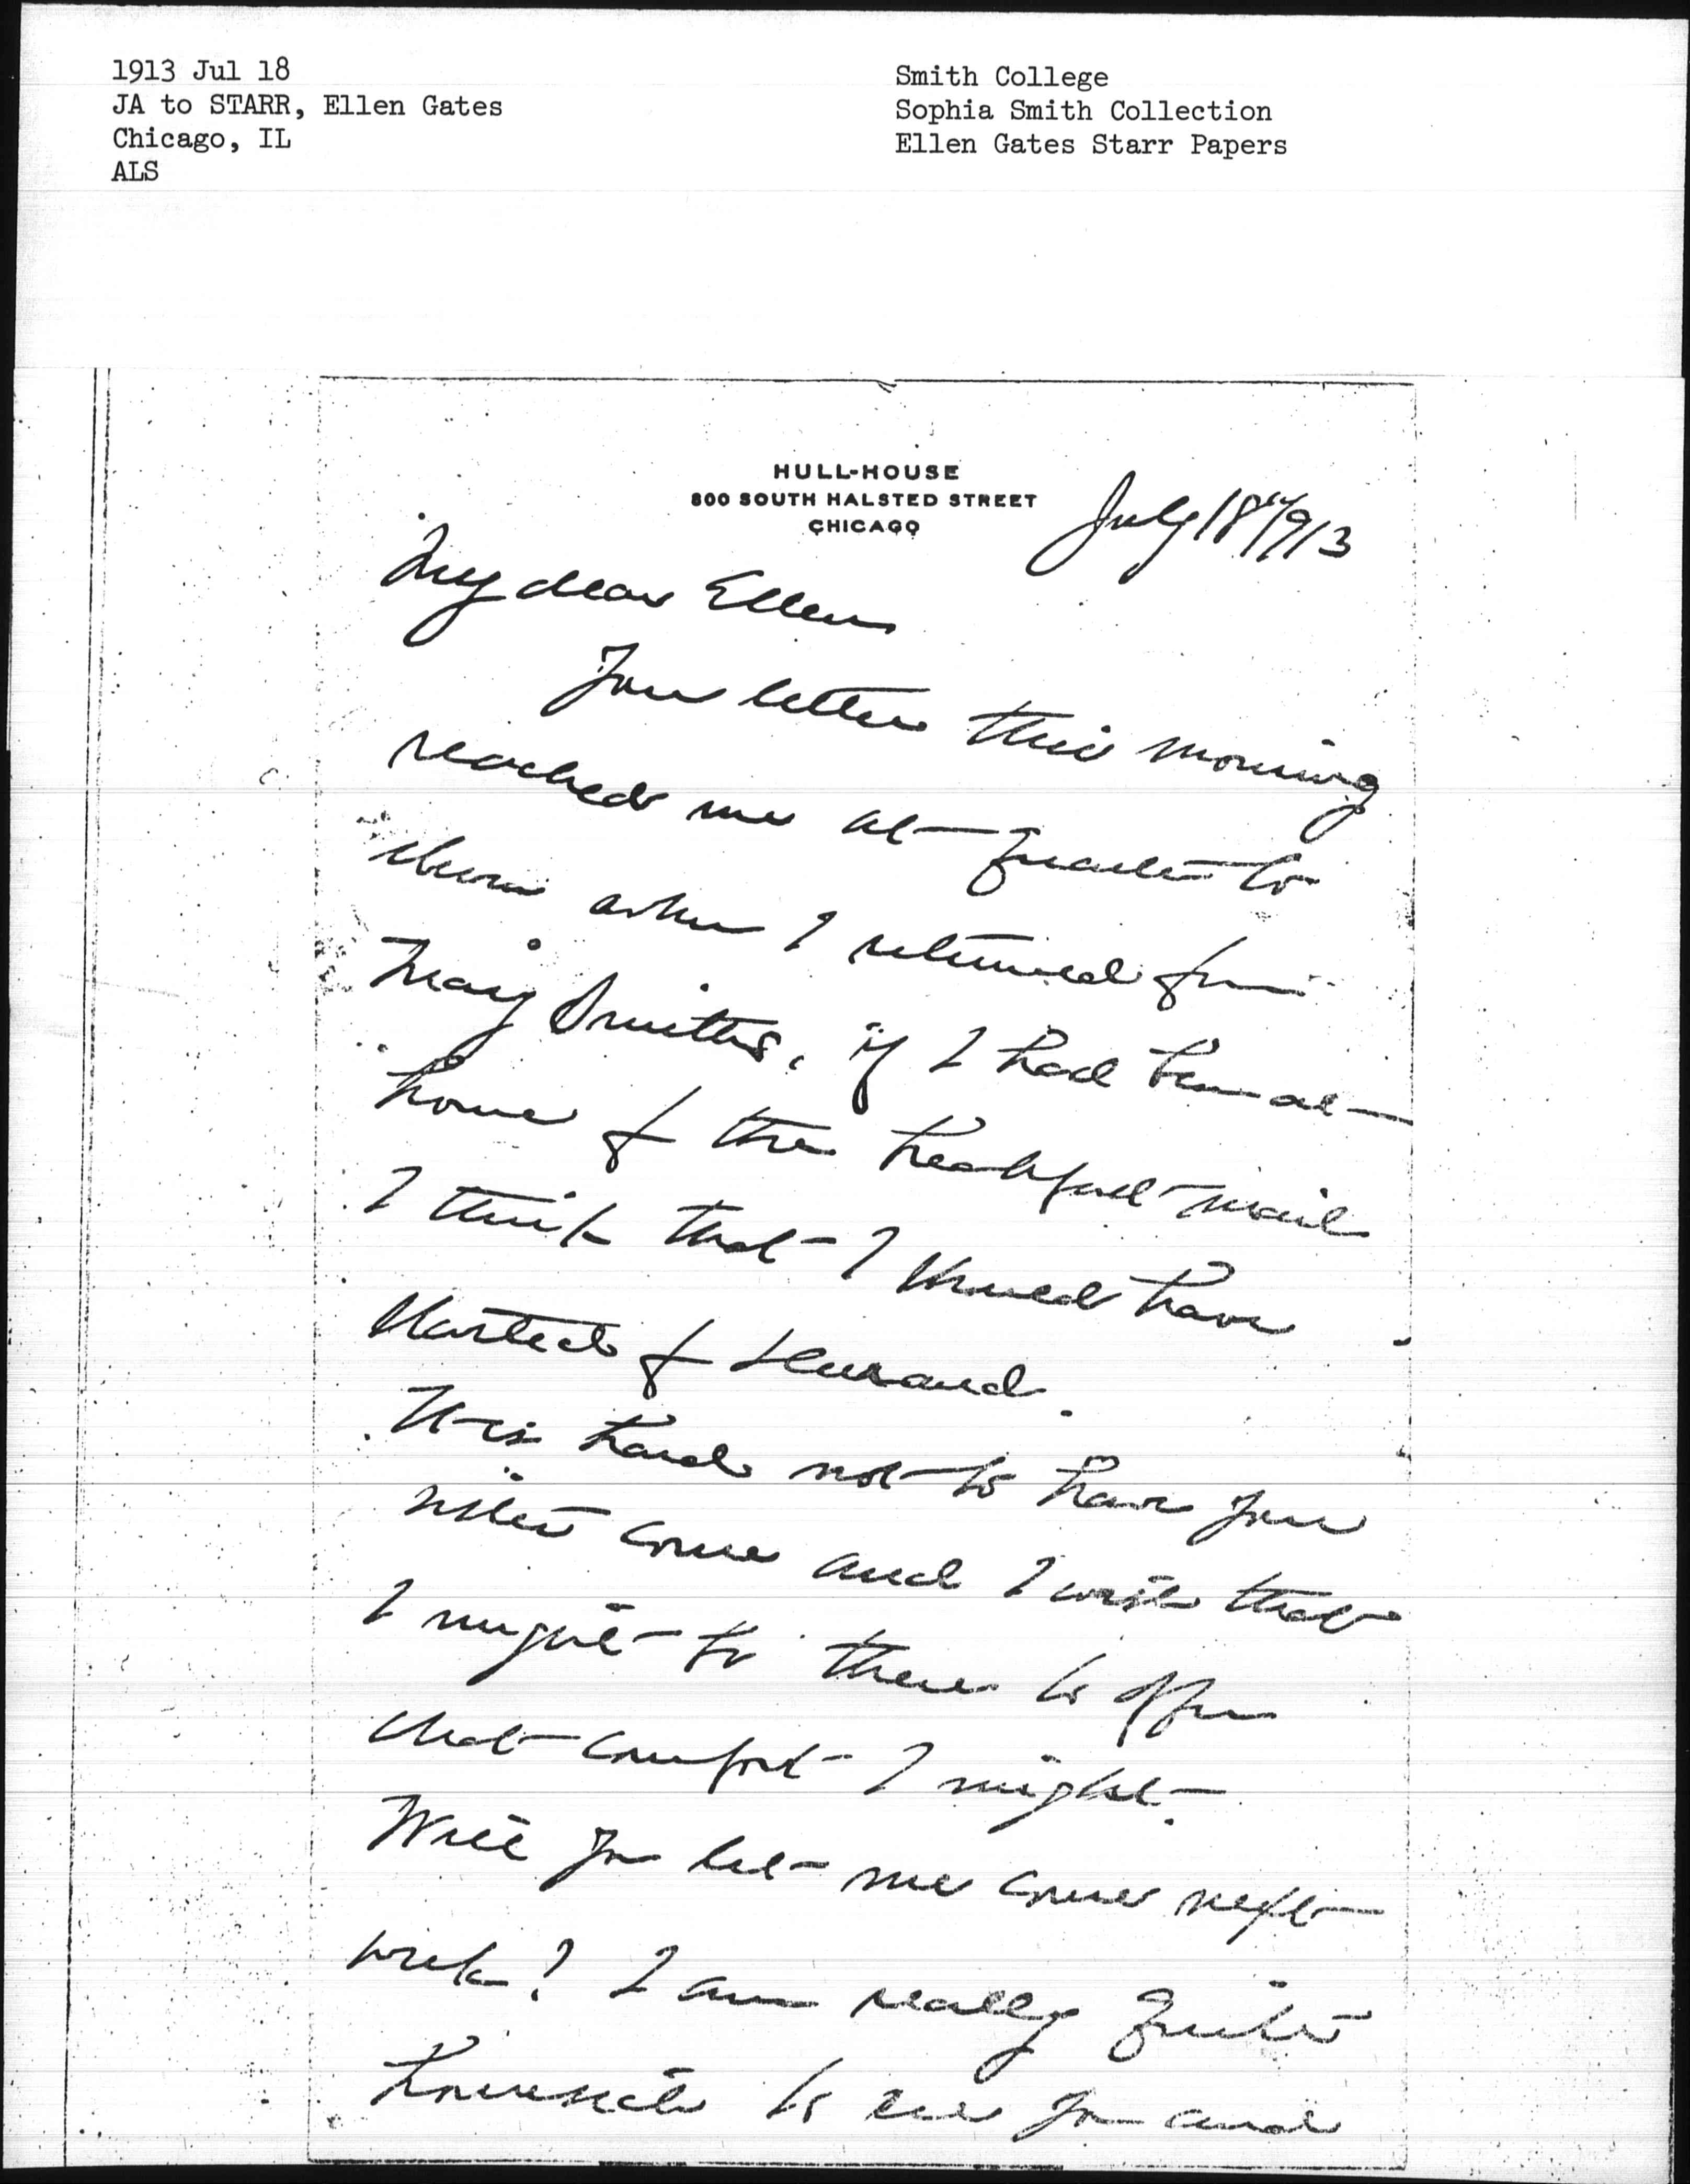 1913 Jul 18
JA to STARR, Ellen Gates
Chicago, IL
ALS
Smith College
Sophia Smith Collection
Ellen Gates Starr Papers
HULL-HOUSE
800 SOUTH HALSTED STREET
CHICAGO
July 18" 1913
My dear Ellen
Your letter this morning
reached me at quarter to
eleven when I returned from
Mary Smith's, if I had been at
home for the breakfast mail
I think that I should have
started for
It is hard not to have your
sister come and I wish that
I might be there to offer
what comfort I might.
Will you let me come next
week? I am really quite
homesick to see you and